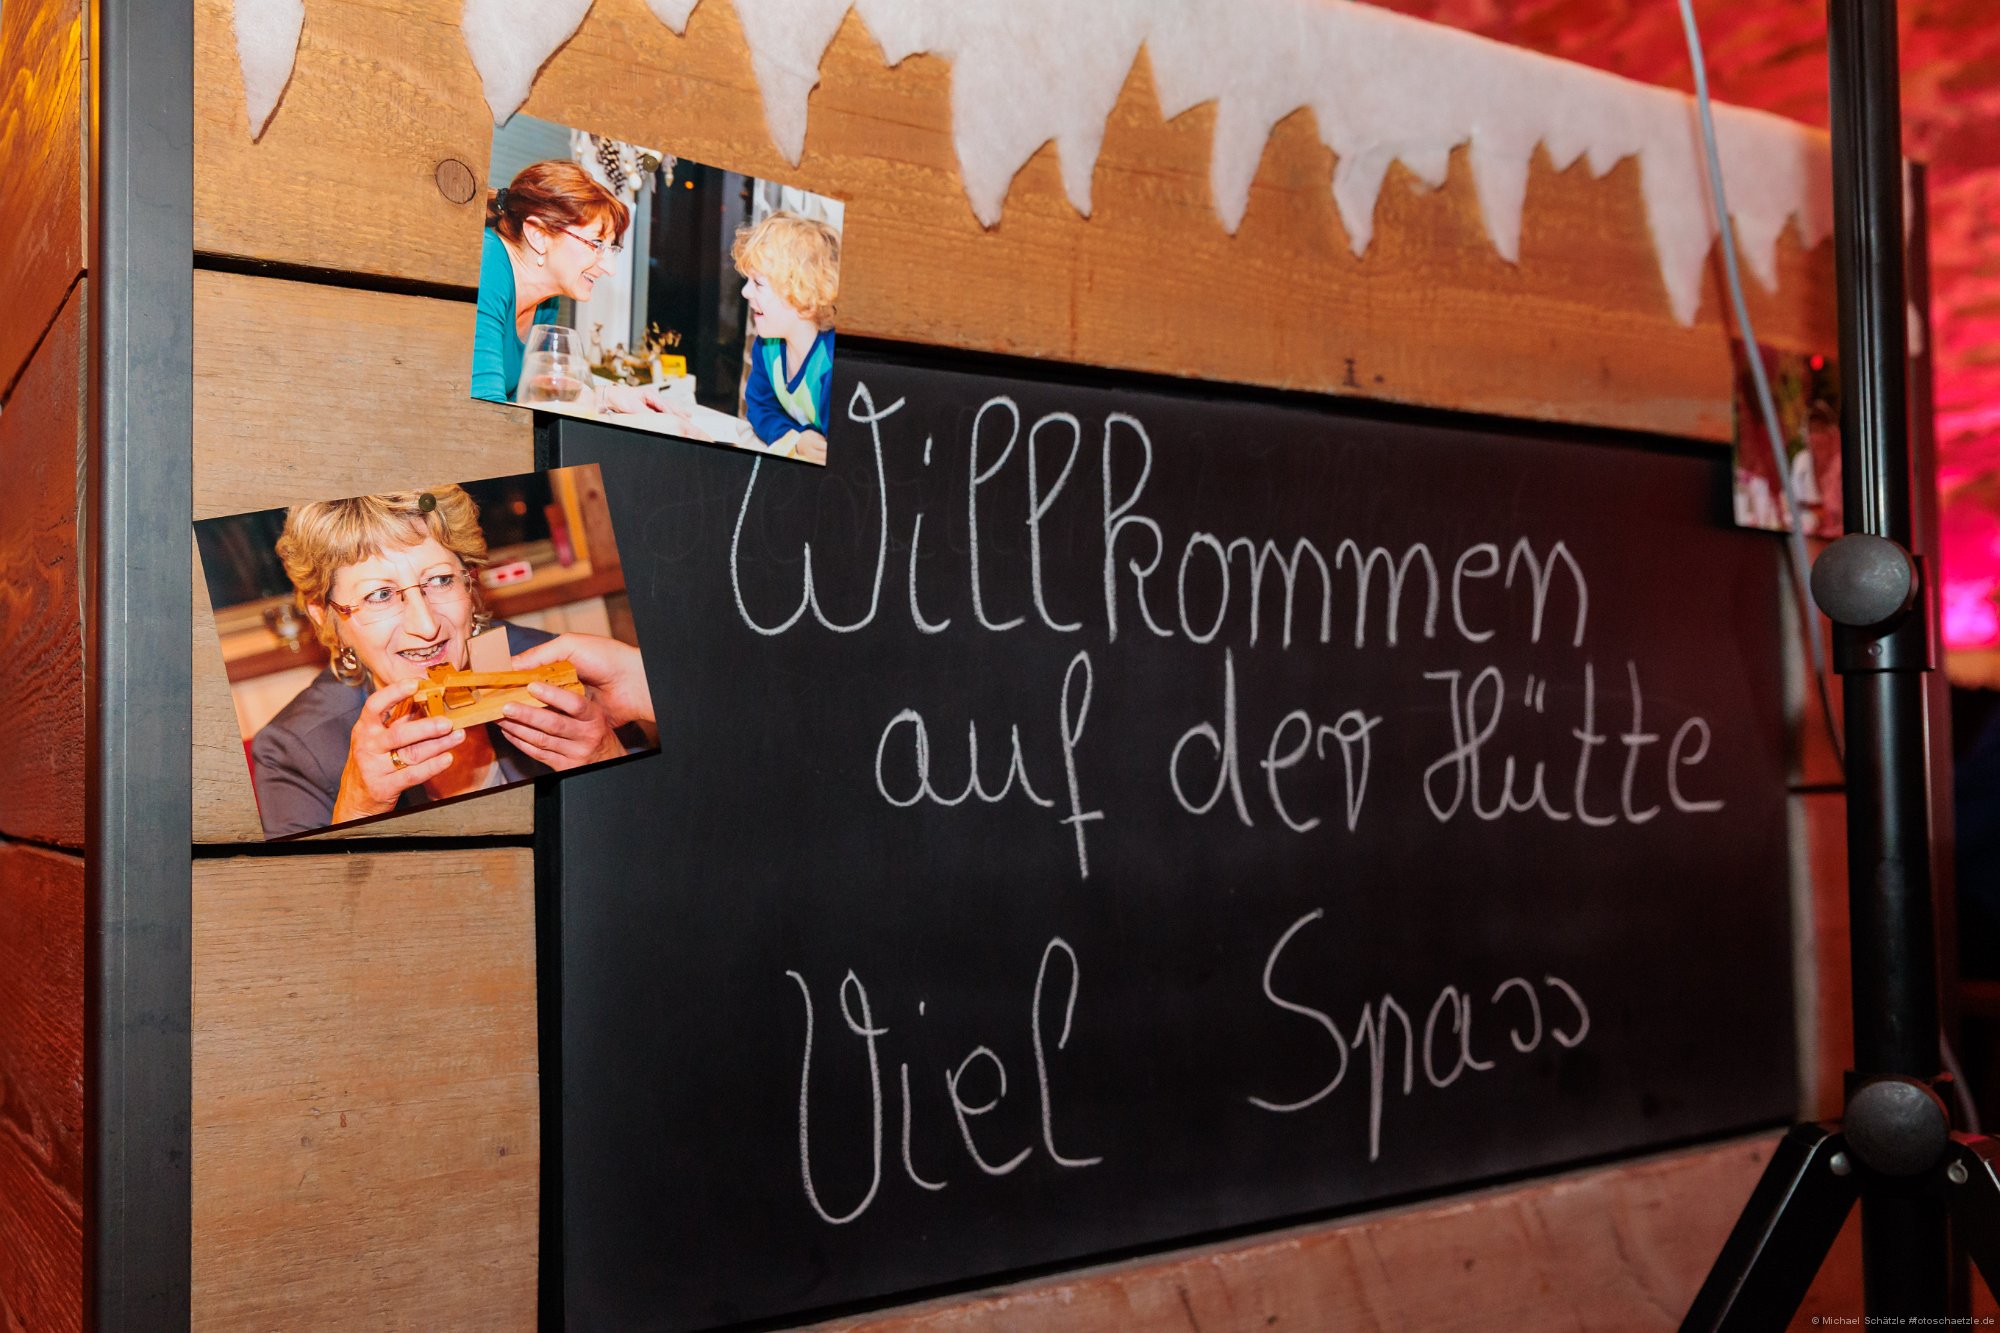 Willkommen
auf der Hütte
Viel Spass
© Michael Schätzle #fotoschaetzle.de